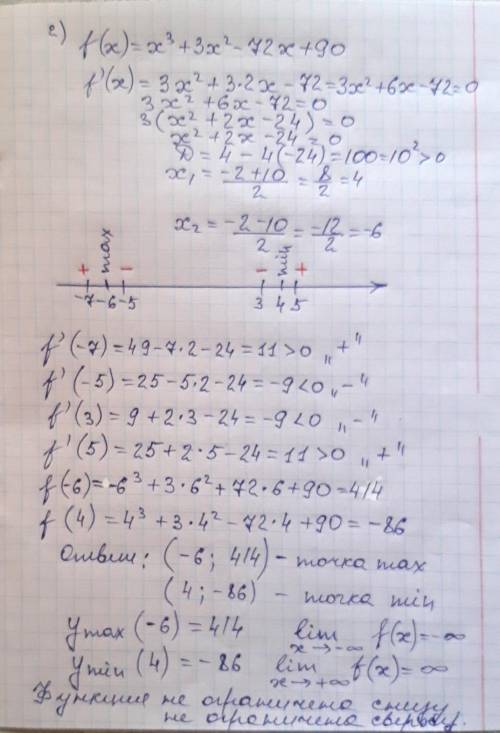 2) f(x) = x³ + 3x² - 72x + 90
f'(x) = 3x² + 3·2x - 72 = 3x² + 6x - 72 = 0
3x² + 6x - 72 = 0
3(x² + 2x - 24) = 0
x² + 2x - 24 = 0
D = 4 - 4(-24) = 100 = 10² > 0
x₁ = (-2+10)/2 = 8/2 = 4
x₂ = (-2-10)/2 = -12/2 = -6
+ max - - min +
-7 -6 -5 3 4 5
f'(-7) = 49 - 7·2 - 24 = 11 > 0 „+"
f'(-5) = 25 - 5·2 - 24 = -9 < 0 „-"
f'(3) = 9 + 2·3 - 24 = -9 < 0 „-"
f'(5) = 25 + 2·5 - 24 = 11 > 0 „+"
f(-6) = -6³ + 3·6² + 72·6 + 90 = 414
f(4) = 4³ + 3·4² - 72·4 + 90 = -86
Ответ: (-6; 414) - точка max
(4; -86) - точка min
y max (-6) = 414 lim x→-∞ f(x) = -∞
y min (4) = -86 lim x→+∞ f(x) = ∞
Функция не ограничена снизу,
не ограничена сверху.